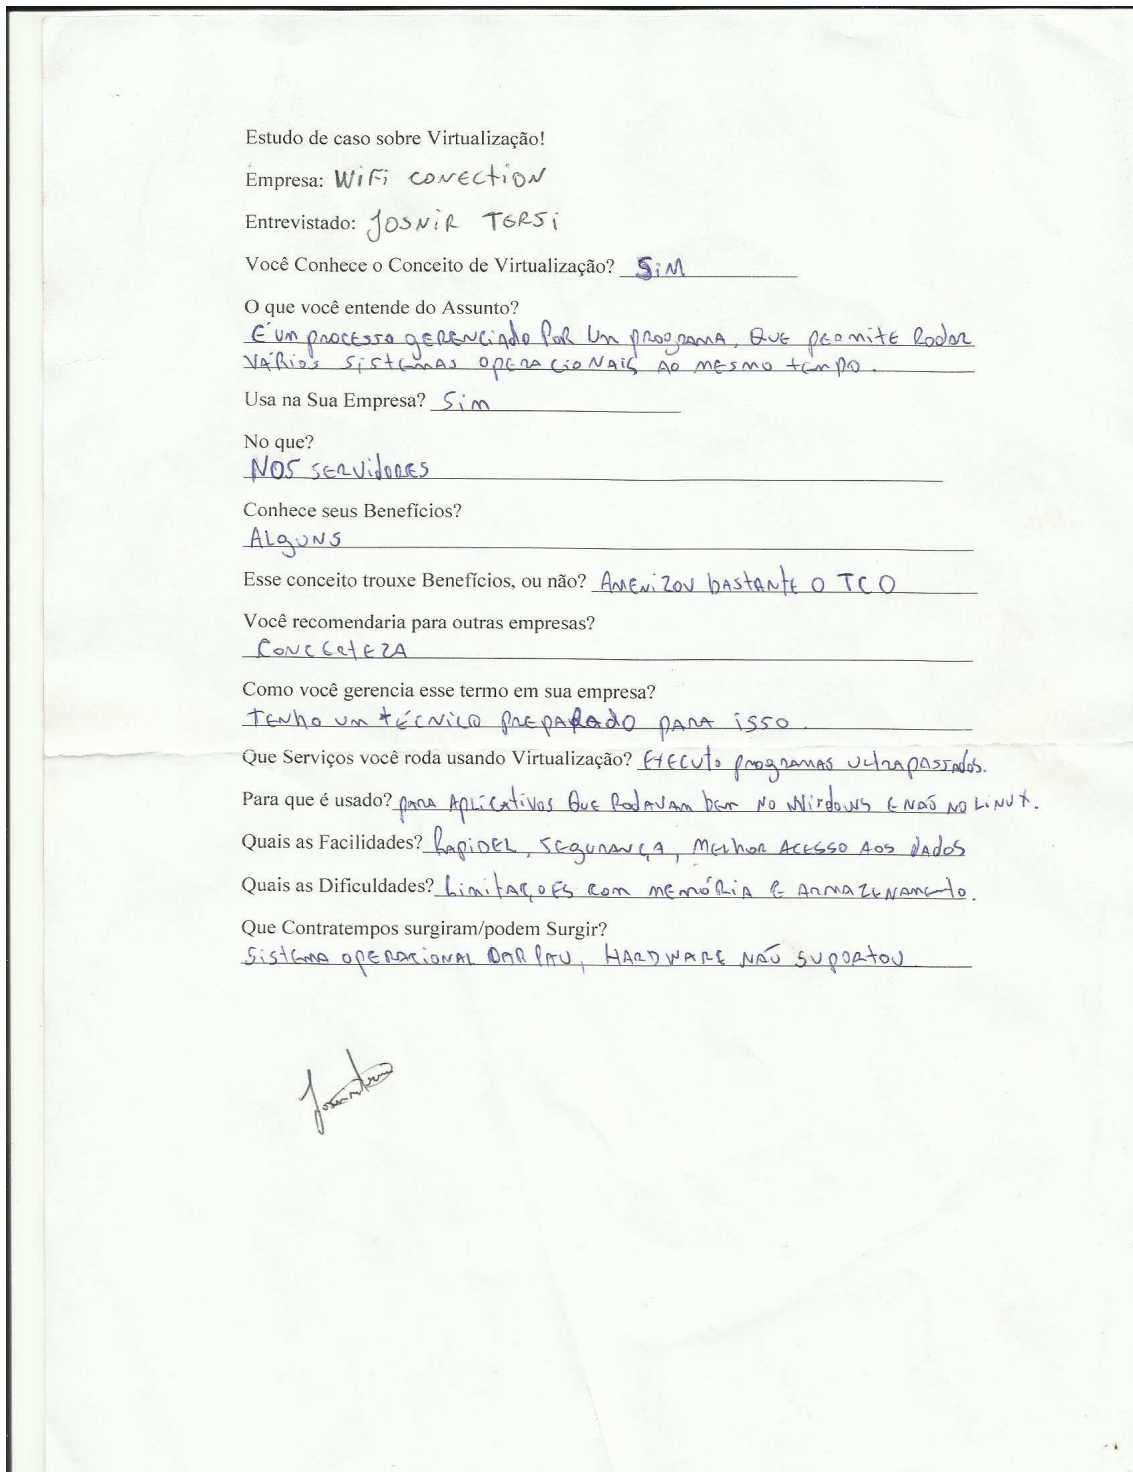 Estudo de caso sobre Virtualização!
Empresa: WiFi CONECtiON
Entrevistado: JOSNiR TERSi
Você Conhece o Conceito de Virtualização? SiM
O que você entende do Assunto?
É UM PROCESSO gERENCiAdo PoR UM PROgRAMA, QUE PERMitE RodAR
VÁRios SiStEMAS OPERACiONAiS AO MESMO tEMPO.
Usa na Sua Empresa? Sim
No que?
NOS SERVidORES
Conhece seus Benefícios?
ALgUNS
Esse conceito trouxe Benefícios, ou não? AMENiZOU bAStANtE O TCO
Você recomendaria para outras empresas?
CONCERtEZA
Como você gerencia esse termo em sua empresa?
tENho UM tÉCNiCO PREPARADO PARA iSSO.
Que Serviços você roda usando Virtualização? EXECUto PROgRAMAS ULtRAPASSAdos.
Para que é usado? PARA APLiCAtiVOS QUE RodAVAM bEM NO WiNdOWS E NÃO NO LiNUX.
Quais as Facilidades? RAPiDEZ, SEgURANÇA, MELhoR ACESSO AOS dAdOS
Quais as Dificuldades? LiMitAÇOES COM MEMÓRiA E ARMAZENAMENtO.
Que Contratempos surgiram/podem Surgir?
SiStEMA OPERACiONAL DAR PAU, HARDWARE NÃO SUPORtOU